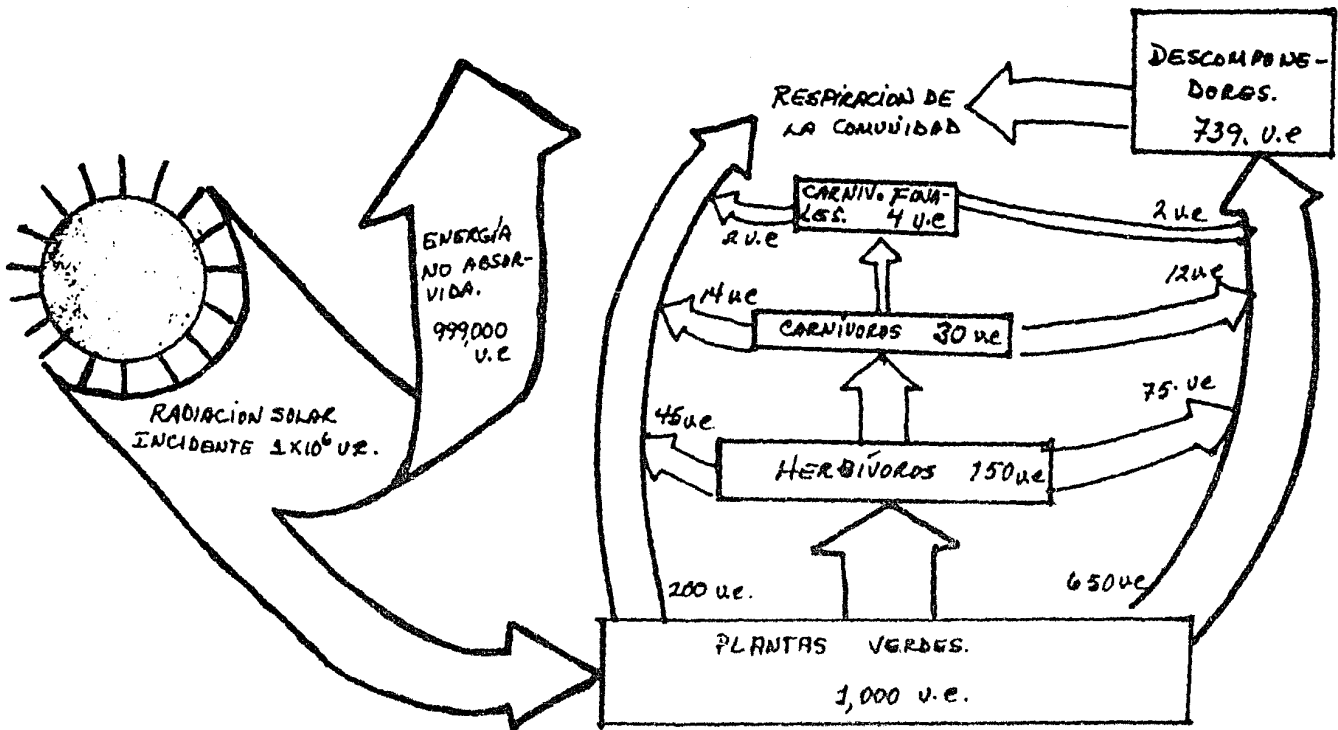 DESCOMPONE-
DORES.
739. U.e
RESPIRACION DE
LA COMUNIDAD
CARNIV. FINA-
LES. 4 U.e
2 u.e
2 u.e
ENERGÍA
NO ABSOR-
VIDA.
999,000
U.e
14 u.e
12 u.e
CARNÍVOROS 30 u.e
RADIACION SOLAR
INCIDENTE 1X10⁶ U.e.
45 u.e.
75. u.e
HERBÍVOROS 150 u.e
200 u.e.
650 u.e
PLANTAS VERDES.
1,000 U.e.